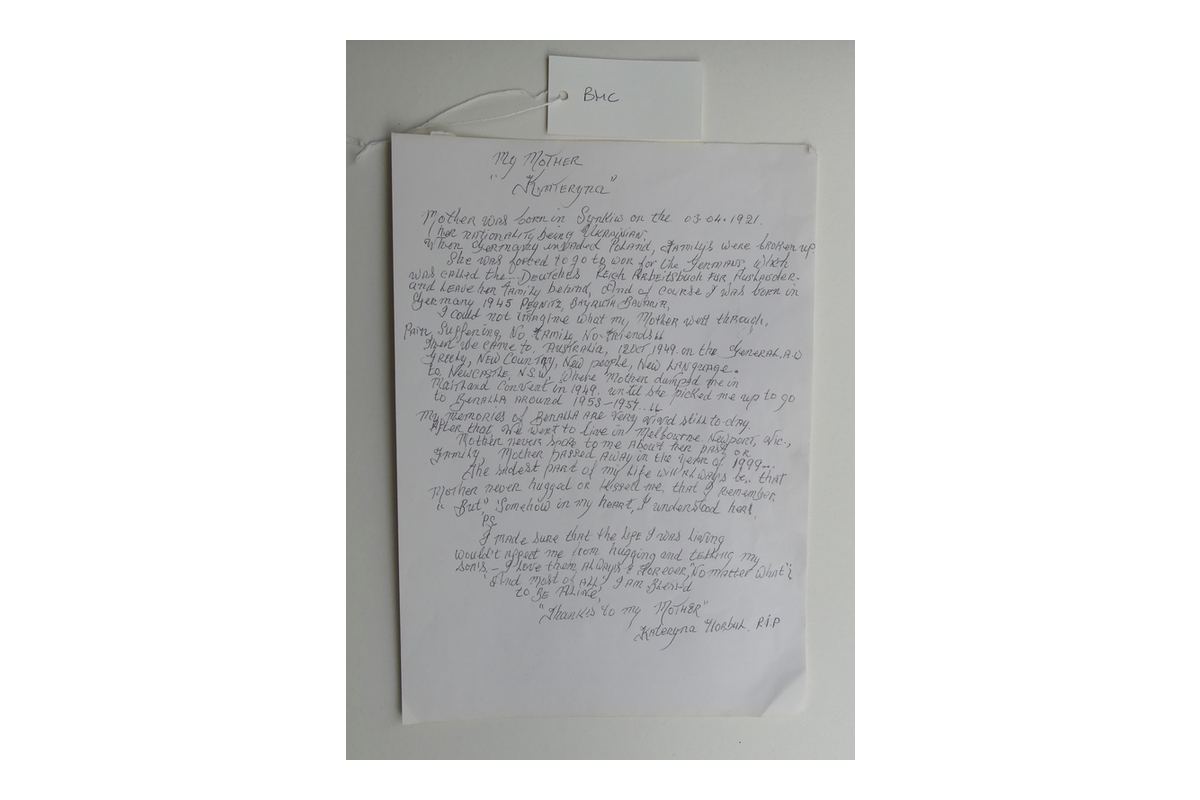 BMC
My MOTHER
"Kateryna"
Mother was born in Synkiw on the 03.04.1921.
(her nationality being Ukrainian.
When Germany invaded Poland, Family's were broken up
She was forced to go to wor for the Germans, which
was called the Deutches Reich Arbeitsbuch Fur Auslaoder.
and leave her family behind, And of course I was born in
Germany 1945 Pegnitz, Bayruth Bavaria.
I could not imagine what my Mother went through,
Pain, Suffering, No Family, No Friends
Then we came to Australia, 1949 on the General A.W
Greely, New Country, New people, New Language.
to Newcastle, N.S.W, where Mother dumped me in
Maitland Convent in 1949. until she picked me up to go
to Benalla around 1953-1954..
My memories of Benalla are very vivid still to-day
After that we went to live in Melbourne Newport, Vic.,
Mother never spoke to me about her past or
Family, Mother passed away in the year of 1999...
The sadest part of my life will always be, that
Mother never hugged or kissed me, that I remember
"But" Somehow in my heart, I understood her!
PS
I made sure that the life I was living
wouldn't affect me from hugging and telling my
son's - I love them, always & forever, "No matter what"!
And most of all, I am Bless'd
to be Alive,
"Thank's to my Mother"
Kateryna R.I.P